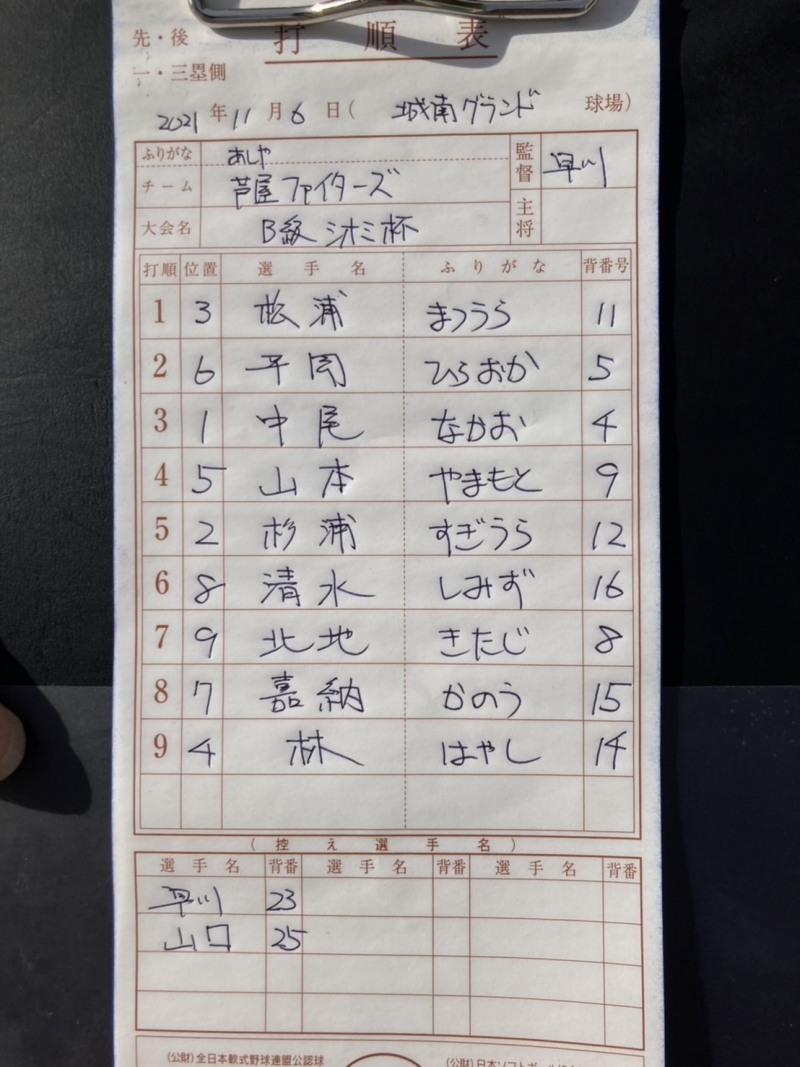 打順表
先・後
一・三塁側
2021年11月6日(城南グランド球場)
ふりがな あしや
チーム 芦屋ファイターズ
監督 早川
主将
大会名 B級シオミ杯
打順 位置 選手名 ふりがな 背番号
1 3 松浦 まつうら 11
2 6 平岡 ひらおか 5
3 1 中尾 なかお 4
4 5 山本 やまもと 9
5 2 杉浦 すぎうら 12
6 8 清水 しみず 16
7 9 北地 きたじ 8
8 7 嘉納 かのう 15
9 4 林 はやし 14
(控え選手名)
選手名 背番 選手名 背番 選手名 背番
早川 23
山口 25
(公財)全日本軟式野球連盟公認球
(公財)日本ソフトボール